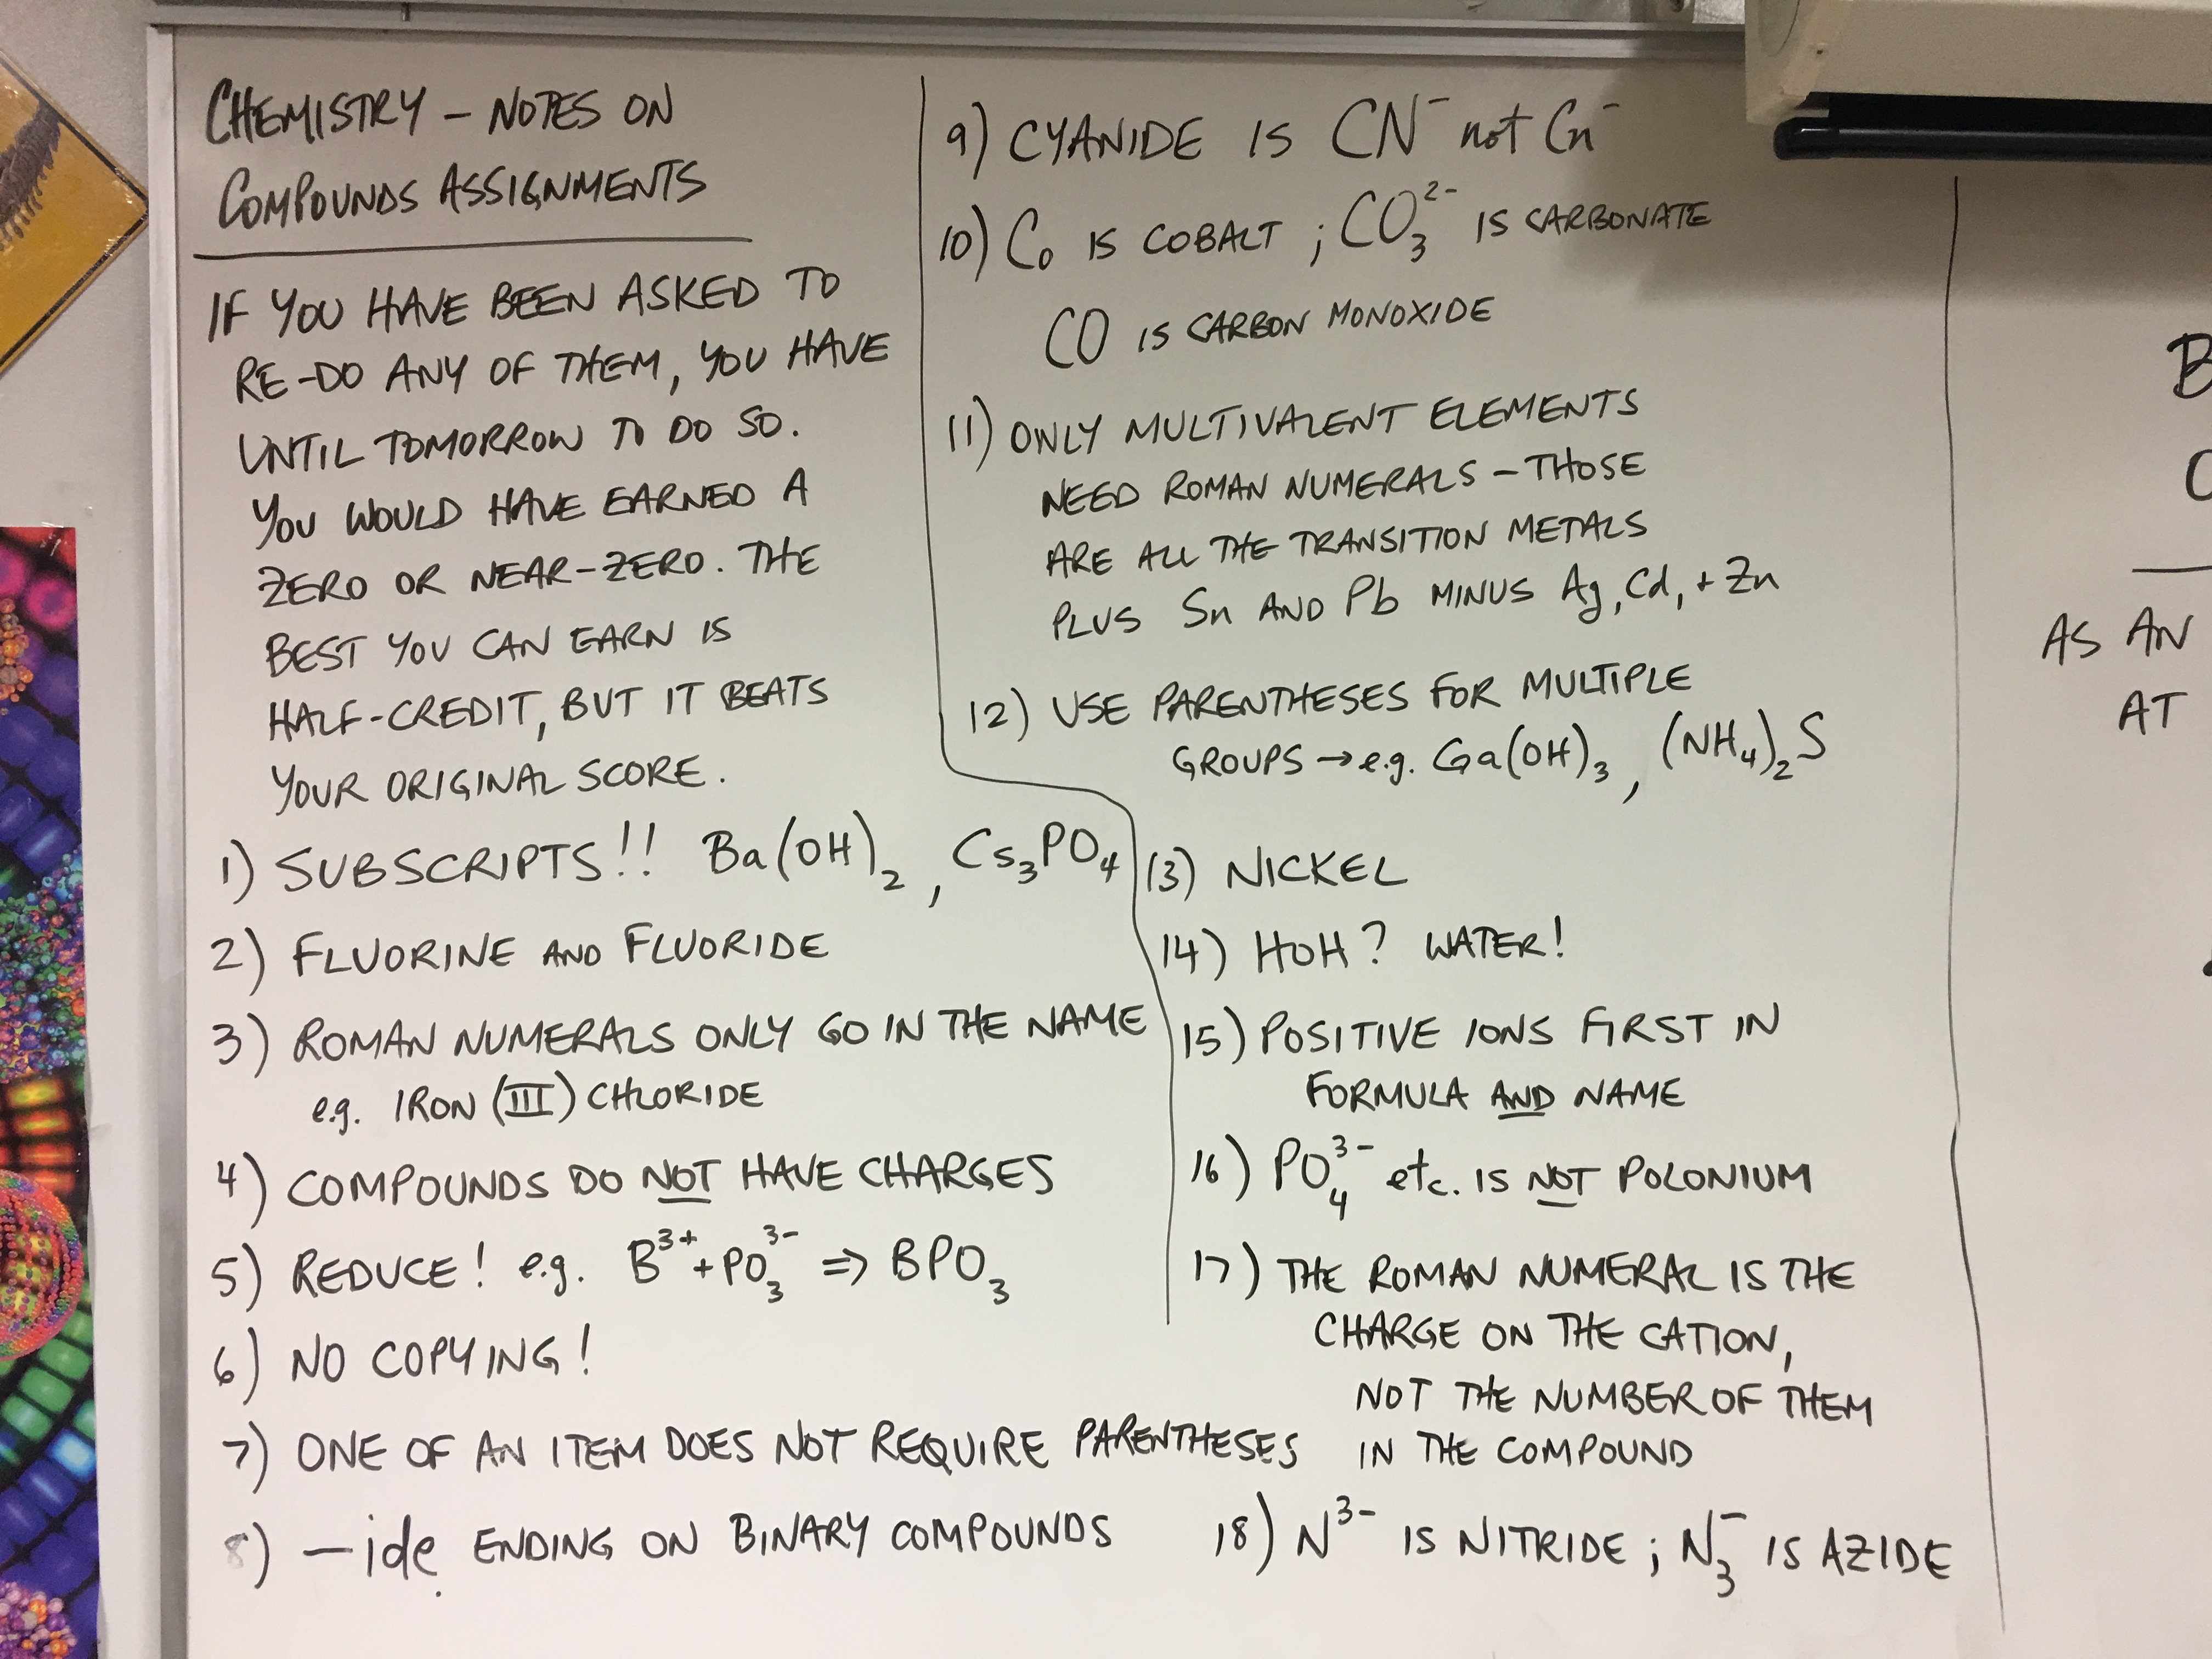 CHEMISTRY – NOTES ON
COMPOUNDS ASSIGNMENTS
IF YOU HAVE BEEN ASKED TO
RE-DO ANY OF THEM, YOU HAVE
UNTIL TOMORROW TO DO SO.
YOU WOULD HAVE EARNED A
ZERO OR NEAR-ZERO. THE
BEST YOU CAN EARN IS
HALF-CREDIT, BUT IT BEATS
YOUR ORIGINAL SCORE.
1) SUBSCRIPTS!! Ba(OH)₂, Cs₃PO₄
2) FLUORINE AND FLUORIDE
3) ROMAN NUMERALS ONLY GO IN THE NAME
e.g. IRON (III) CHLORIDE
4) COMPOUNDS DO NOT HAVE CHARGES
5) REDUCE! e.g. B³⁺ + PO₃³⁻ ⇒ BPO₃
6) NO COPYING!
7) ONE OF AN ITEM DOES NOT REQUIRE PARENTHESES
8) –ide ENDING ON BINARY COMPOUNDS
9) CYANIDE IS CN⁻ not Cn⁻
10) Co IS COBALT ; CO₃²⁻ IS CARBONATE
CO IS CARBON MONOXIDE
11) ONLY MULTIVALENT ELEMENTS
NEED ROMAN NUMERALS – THOSE
ARE ALL THE TRANSITION METALS
PLUS Sn AND Pb MINUS Ag, Cd, + Zn
12) USE PARENTHESES FOR MULTIPLE
GROUPS → e.g. Ga(OH)₃, (NH₄)₂S
13) NICKEL
14) HOH? WATER!
15) POSITIVE IONS FIRST IN
FORMULA AND NAME
16) PO₄³⁻ etc. IS NOT POLONIUM
17) THE ROMAN NUMERAL IS THE
CHARGE ON THE CATION,
NOT THE NUMBER OF THEM
IN THE COMPOUND
18) N³⁻ IS NITRIDE ; N₃⁻ IS AZIDE
B
C
AS AN
AT